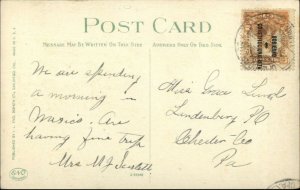 POST CARD
MESSAGE MAY BE WRITTEN ON THIS SIDE
ADDRESS ONLY ON THIS SIDE
We are spending
a morning in
Mexico. Are
having fine trip
Mrs M J
Miss Grace
Lindenburg PO
Chester Co
Pa